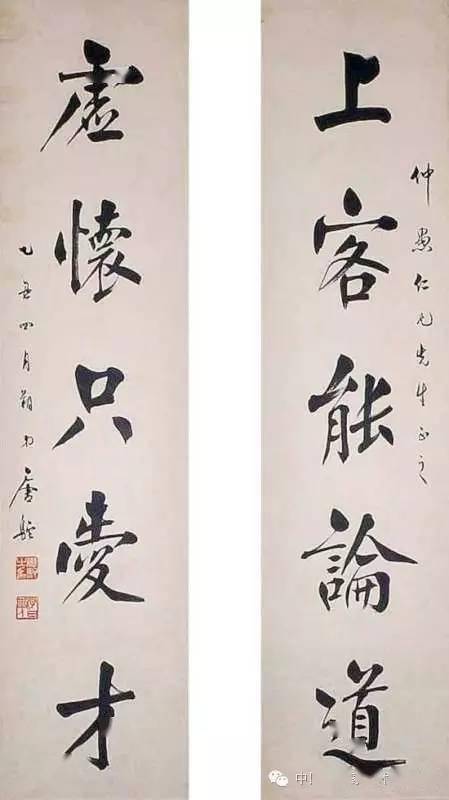 仲愚仁兄先生正之
上客能論道
虛懷只愛才
乙丑四月朔 唐駝